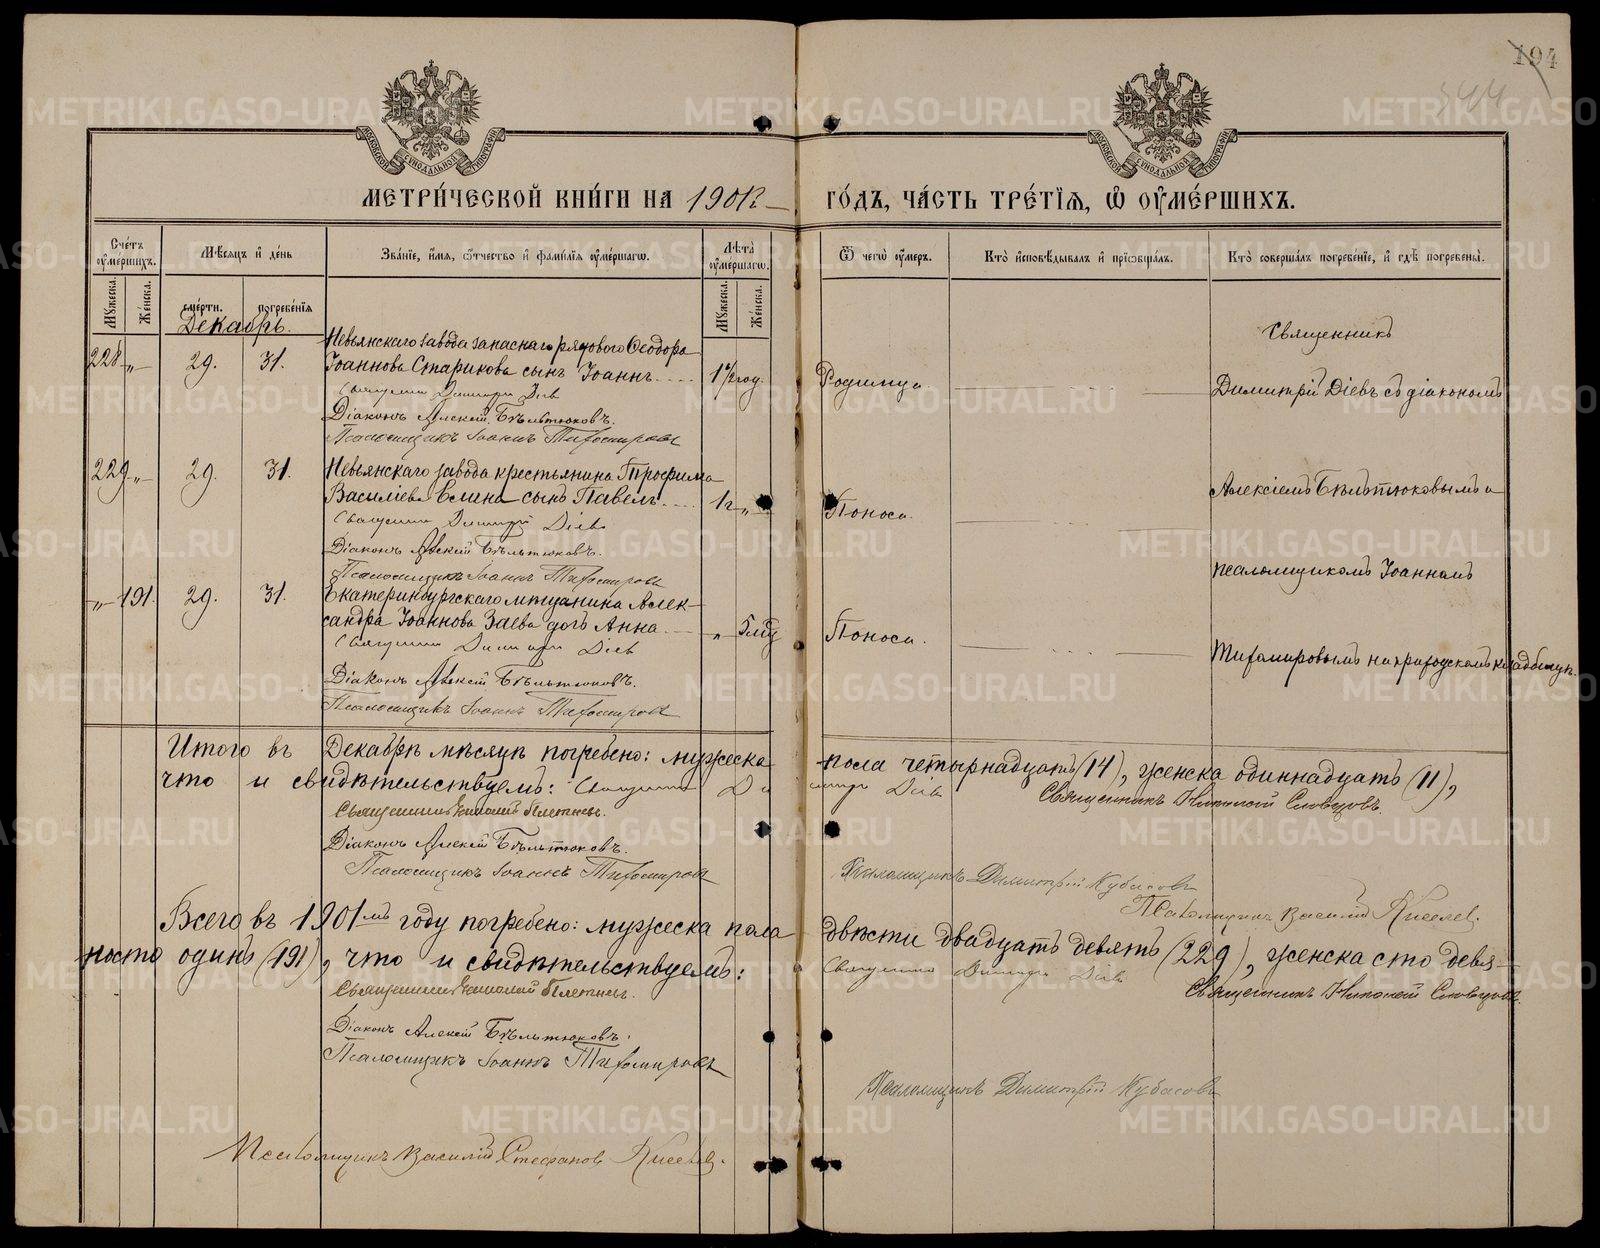 194
544
МОСКОВСКОЙ СѴНОДАЛЬНОЙ ТИПОГРАФІИ
МОСКОВСКОЙ СѴНОДАЛЬНОЙ ТИПОГРАФІИ
МЕТРИ́ЧЕСКОЙ КНИ́ГИ НА 1901 г. ГО́ДЪ, ЧА́СТЬ ТРЕ́ТІѦ, Ѡ ОУМЕ́РШИХЪ.
Сче́тъ оуме́ршихъ.
Мꙋжеска.
Же́нска.
Мѣсѧцъ и де́нь
сме́рти.
погребе́нїѧ
Зва́нїе, и́мѧ, ѻ҆́тчество и фами́лїѧ оуме́ршагѡ.
Лѣта̀ оуме́ршагѡ.
Мꙋжеска.
Же́нска.
Ѿ чегѡ̀ оу́меръ.
Кто̀ и҆сповѣ́дывалъ и҆ прїѡбща́лъ.
Кто̀ соверша́лъ погребе́нїе, и҆ гдѣ̀ погребены̀.
Декабрь.
228 „ 29. 31.
Невьянскаго завода запаснаго рядового Ѳеодора
Іоаннова Старикова сынъ Іоаннъ. 1½ год. Родимца.
Священникъ Димитрій Діевъ
Діаконъ Алексій Бѣльтюковъ.
Псаломщикъ Іоаннъ Тихомировъ
Священникъ
Димитрій Діевъ съ діакономъ
229 „ 29. 31.
Невьянскаго завода крестьянина Трофима
Василіева Елина сынъ Павелъ. 1 г. „ Поноса.
Священникъ Димитрій Діевъ
Діаконъ Алексій Бѣльтюковъ.
Псаломщикъ Іоаннъ Тихомировъ
Алексіемъ Бѣльтюковымъ и
псаломщикомъ Іоанномъ
„ 191. 29. 31.
Екатеринбургскаго мѣщанина Алек-
сандра Іоаннова Заева дочь Анна. „ Поноса.
Священникъ Димитрій Діевъ
Діаконъ Алексій Бѣльтюковъ.
Псаломщикъ Іоаннъ Тихомировъ
Тихомировымъ на приходскомъ кладбищѣ.
Итого въ Декабрѣ мѣсяцѣ погребено: мужеска пола четырнадцать (14), женска одиннадцать (11),
что и свидѣтельствуемъ: Священникъ Димитрій Діевъ
Священникъ Николай Словцовъ.
Священникъ Николай Плетневъ.
Діаконъ Алексій Бѣльтюковъ.
Псаломщикъ Іоаннъ Тихомировъ
Псаломщикъ Димитрій Кубасовъ
Псаломщикъ Василій Киселев.
Всего въ 1901мъ году погребено: мужеска пола двѣсти двадцать девять (229), женска сто девя-
носто одинъ (191), что и свидѣтельствуемъ: Священникъ Димитрій Діевъ
Священникъ Николай Словцовъ.
Священникъ Николай Плетневъ.
Діаконъ Алексій Бѣльтюковъ.
Псаломщикъ Іоаннъ Тихомировъ
Псаломщикъ Димитрій Кубасовъ
Псаломщикъ Василій Стефанов Киселев.
METRIKI.GASO-URAL.RU